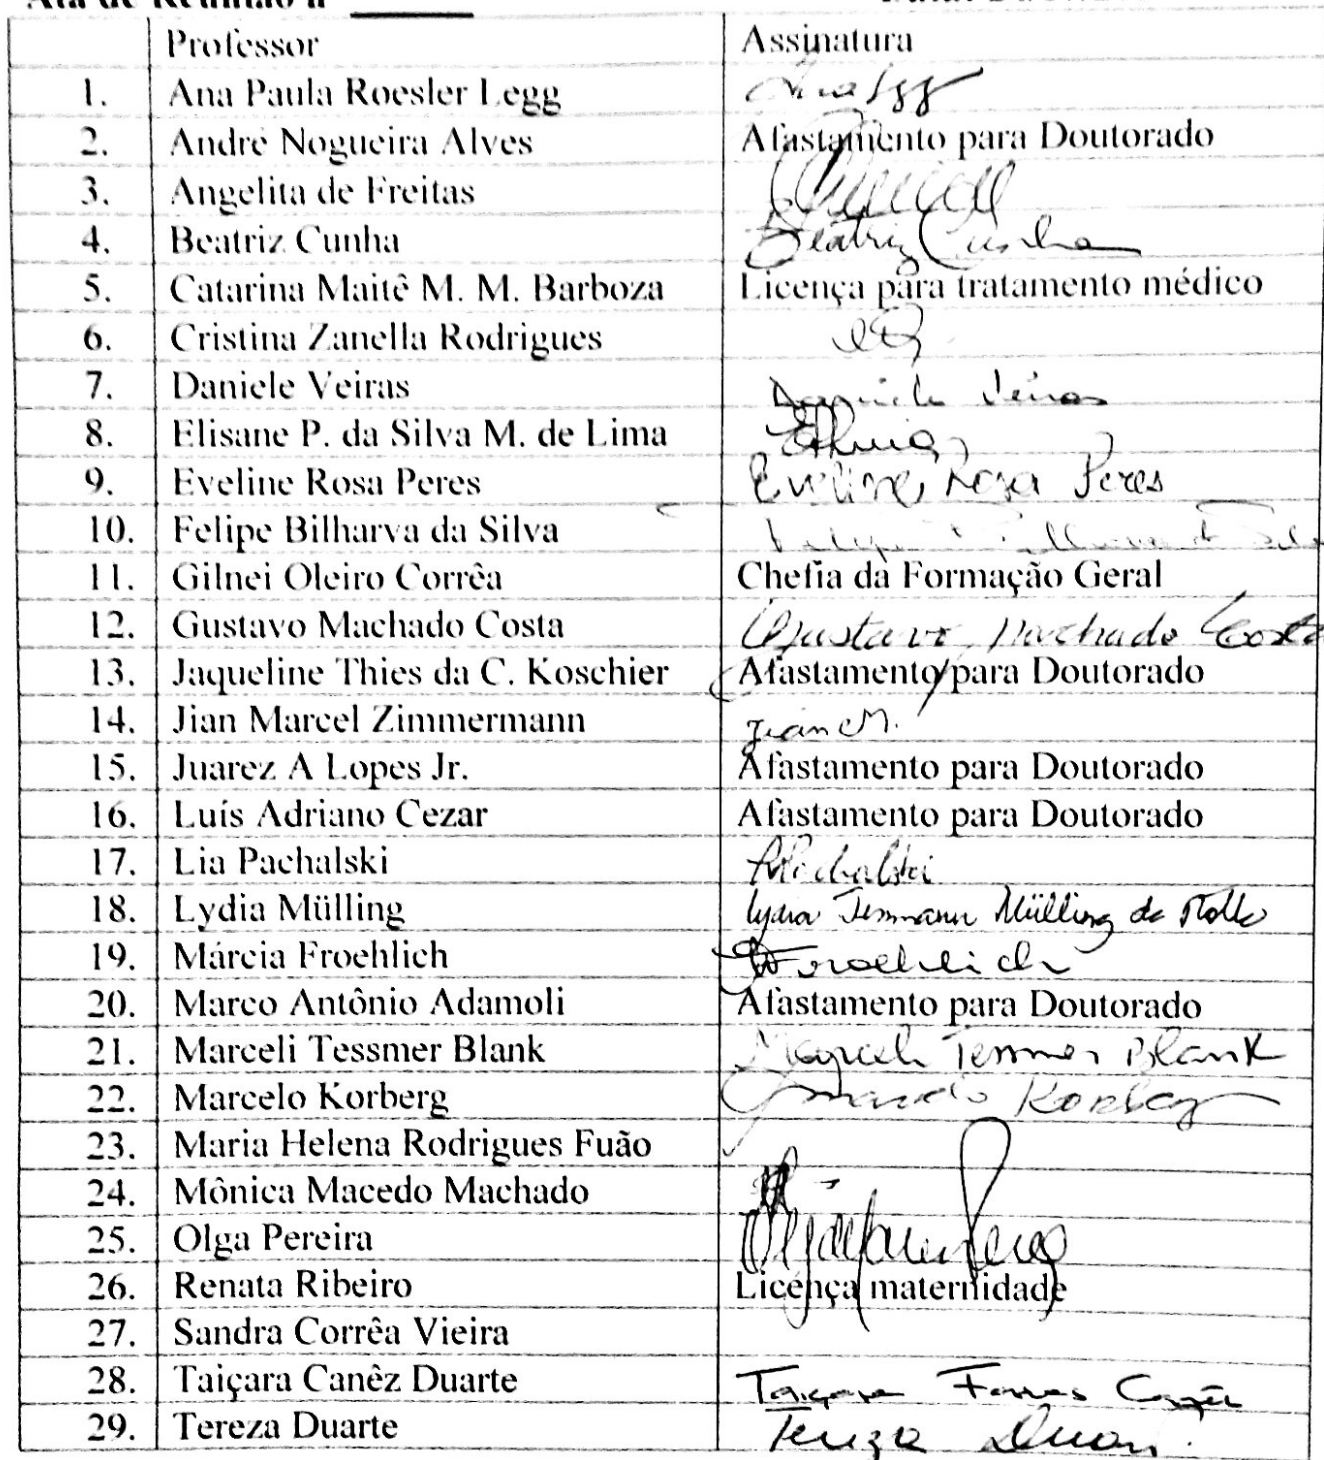 Ata de Reunião n
Professor Assinatura
1. Ana Paula Roesler Legg Ana Legg
2. André Nogueira Alves Afastamento para Doutorado
3. Angelita de Freitas
4. Beatriz Cunha Beatriz Cunha
5. Catarina Maitê M. M. Barboza Licença para tratamento médico
6. Cristina Zanella Rodrigues
7. Daniele Veiras Daniele Veiras
8. Elisane P. da Silva M. de Lima
9. Eveline Rosa Peres Eveline Rosa Peres
10. Felipe Bilharva da Silva Felipe Bilharva da Silva
11. Gilnei Oleiro Corrêa Chefia da Formação Geral
12. Gustavo Machado Costa Gustavo Machado Costa
13. Jaqueline Thies da C. Koschier Afastamento para Doutorado
14. Jian Marcel Zimmermann Jian M.
15. Juarez A Lopes Jr. Afastamento para Doutorado
16. Luís Adriano Cezar Afastamento para Doutorado
17. Lia Pachalski Pachalski
18. Lydia Mülling Lydia Tessmann Mülling da
19. Márcia Froehlich Froehlich
20. Marco Antônio Adamoli Afastamento para Doutorado
21. Marceli Tessmer Blank Marceli Tessmer Blank
22. Marcelo Korberg Marcelo Korberg
23. Maria Helena Rodrigues Fuão
24. Mônica Macedo Machado
25. Olga Pereira
26. Renata Ribeiro Licença maternidade
27. Sandra Corrêa Vieira
28. Taiçara Canêz Duarte Taiçara Farias Canêz
29. Tereza Duarte Tereza Duarte